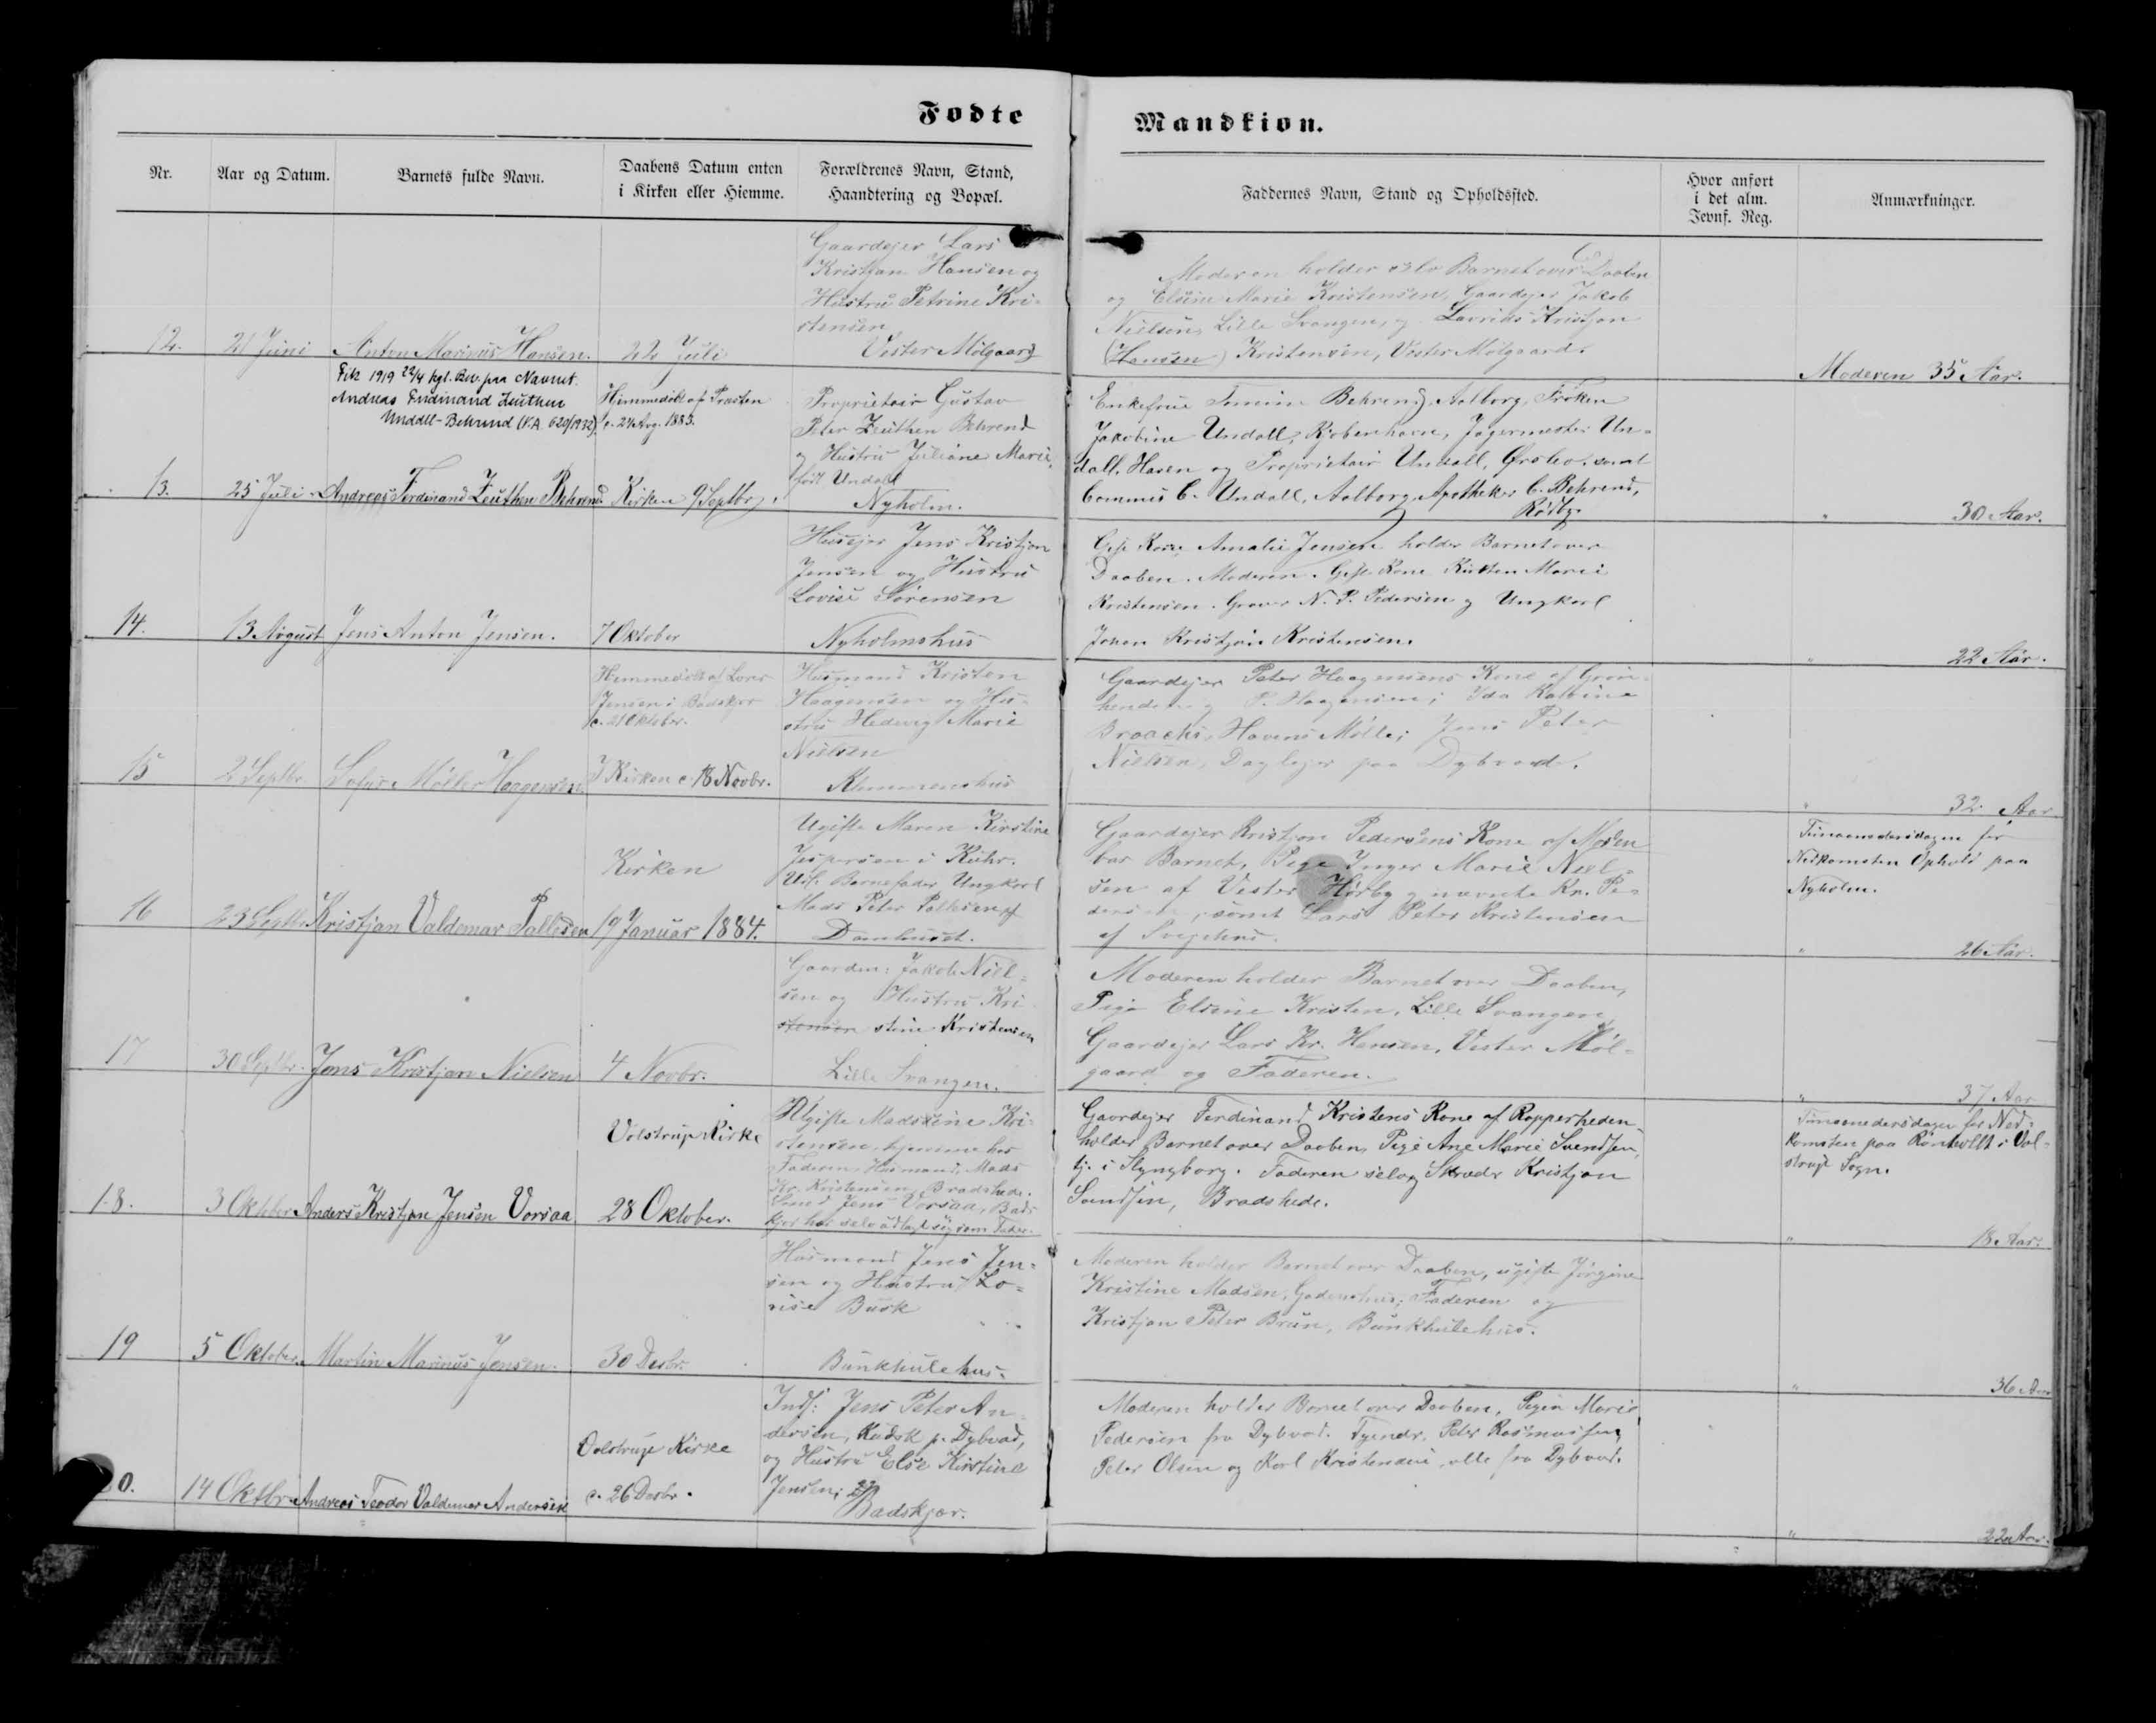 Fødte
Mandkiøn.
Nr.
Aar og Datum.
Barnets fulde Navn.
Daabens Datum enten
i Kirken eller Hiemme.
Forældrenes Navn, Stand,
Haandtering og Bopæl.
Faddernes Navn, Stand og Opholdssted.
Hvor anført
i det alm.
Jevnf. Reg.
Anmærkninger.
12.
21 Juni
Anton Marinus Hansen.
22 Juli
Gaardejer Lars
Kristjan Hansen og
Hustru Petrine Kri-
stensen
Vester Mølgaard
Moderen holder selv Barnet over Daaben
og Elsine Marie Kristensen, Gaardejer Jakob
Nielsen, Lille Svangen, og Lavrids Kristjan
(Hansen) Kristensen, Vester Mølgaard.
Moderen 35 Aar.
13.
25 Juli
Fik 1919 22/4 kgl. Bev. paa Navnet
Andreas Ferdinand Zeuthen
Unddall-Behrend (K.A. 620/1932).
Andreas Ferdinand Zeuthen Behrend
Hjemmedøbt af Præsten
c. 24 Avg. 1883.
Kirken 9 Septbr.
Proprietair Gustav
Peter Zeuthen Behrend
og Hustru Juliane Marie,
født Undall
Nyholm.
Enkefrue Behrend, Aalborg, Frøken
Jakobine Undall, Kjøbenhavn, Jægermester Un-
dall, Haven og Proprietair Undall, Ørslev, samt
Commis C. Undall, Aalborg, Apotheker C. Behrend,
Rødby.
" 30 Aar.
14.
13 August
Jens Anton Jensen.
7 Oktober
Husejer Jens Kristjan
Jensen og Hustru
Lovise Sørensen
Nyholmshus
Gift Kone Amalie Jensen holder Barnet over
Daaben. Moderen. Gift Kone Kirsten Marie
Kristensen. Graver N. P. Pedersen og Ungkarl
Johan Kristjan Kristensen.
" 22 Aar.
15
2 Septbr.
Sofus Møller Haagensen
Hjemmedøbt af Lærer
Jensen i Badskjær
c. 21 Oktober.
I Kirken c. 18 Novbr.
Husmand Kristen
Haagensen og Hu-
stru Hedevig Marie
Nielsen
Gaardejer Peter Haagensens Kone af Grøn-
heden og P. Haagensen; Ida Katrine
Braachs, Havens Mølle; Jens Peter
Nielsen, Daglejer paa Dybvad.
" 32 Aar
16
23 Septbr
Kristjan Valdemar Pallesen
Kirken
19 Januar 1884.
Ugifte Maren Kirstine
Jespersen i
Udl. Barnefader Ungkarl
Mads Peter Pallesen af
Damhuset.
Gaardejer Kristjan Pedersens Kone af Mosen
bar Barnet, Pige Inger Marie Niel-
sen af Vester Hørby og nævnte Kr. Pe-
dersen, samt Lars Peter Kristensen
af
Timaanedersdagen før
Nedkomsten Ophold paa
Nyholm.
" 26 Aar.
17
30 Septbr.
Jens Kristjan Nielsen
4 Novbr.
Gaardm: Jakob Niel-
sen og Hustru Kri-
stensen stine Kristensen
Lille Svangen.
Moderen holder Barnet over Daaben,
Pige Elsine Kristen, Lille Svangen,
Gaardejer Lars Kr. Hansen, Vester Møl-
gaard og Faderen.
" 37 Aar
18.
3 Oktober
Anders Kristjan Jensen Vorsaa
Volstrup Kirke
28 Oktober.
Ugifte Madsine Kri-
stensen, hjemme hos
Faderen, Husmand Mads
Kr. Kristensen, Bradshede.
Smed Jens Vorsaa, Bads-
kjær har selv udlagt sig som Fader.
Gaardejer Ferdinand Kristens Kone af Ropperheden
holder Barnet over Daaben, Pige Ane Marie Svendsen,
tj. i Slyngborg. Faderen selv og Skræder Kristjan
Svendsen, Bradshede.
Timaanedersdagen før Ned-
komsten paa Rønholt i Vol-
strup Sogn.
" 18 Aar.
19
5 Oktober.
Martin Marinus Jensen.
30 Decbr.
Husmand Jens Jen-
sen og Hustru Lo-
vise Busk
Bunkhulehus.
Moderen holder Barnet over Daaben, ugifte Jørgine
Kristine Madsen, Faderen og
Kristjan Peter Brun, Bunkhulehus.
" 36 Aar
20.
14 Oktbr.
Andreas Teodor Valdemar Andersen
Volstrup Kirke
c. 26 Decbr.
Inds: Jens Peter An-
dersen, Kudsk p. Dybvad,
og Hustru Else Kirstine
Jensen; 22
Badskjær.
Moderen holder Barnet over Daaben, Pigen Marie
Pedersen fra Dybvad. Tyendr. Peter Rasmussen,
Peter Olsen og Karl Kristensen, alle fra Dybvad.
" 22 Aar.